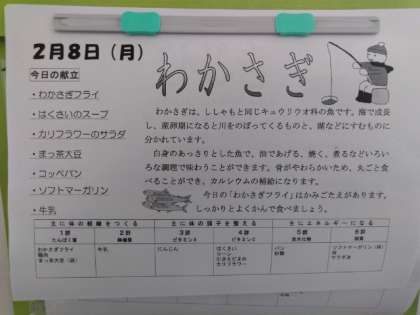 2月8日（月）
わかさぎ
今日の献立
・わかさぎフライ
・はくさいのスープ
・カリフラワーのサラダ
・まっ茶大豆
・コッペパン
・ソフトマーガリン
・牛乳
わかさぎは、ししゃもと同じキュウリウオ科の魚です。海で成長
し、産卵期になると川をのぼってくるものと、湖などにすむものに
分かれています。
白身のあっさりとした魚で、油であげる、焼く、煮るなどいろい
ろな調理で味わうことができます。骨がやわらかいため、丸ごと食
べることができ、カルシウムの補給になります。
今日の「わかさぎフライ」はかみごたえがあります。
しっかりとよくかんで食べましょう。
主に体の組織をつくる 主に体の調子を整える 主にエネルギーになる
1群 2群 3群 4群 5群 6群
たんぱく質 無機質 ビタミンA ビタミンC 炭水化物 脂質
わかさぎフライ 牛乳 にんじん はくさい パン ソフトマーガリン
鶏肉 コーン 砂糖 油
まっ茶大豆 カリフラワー